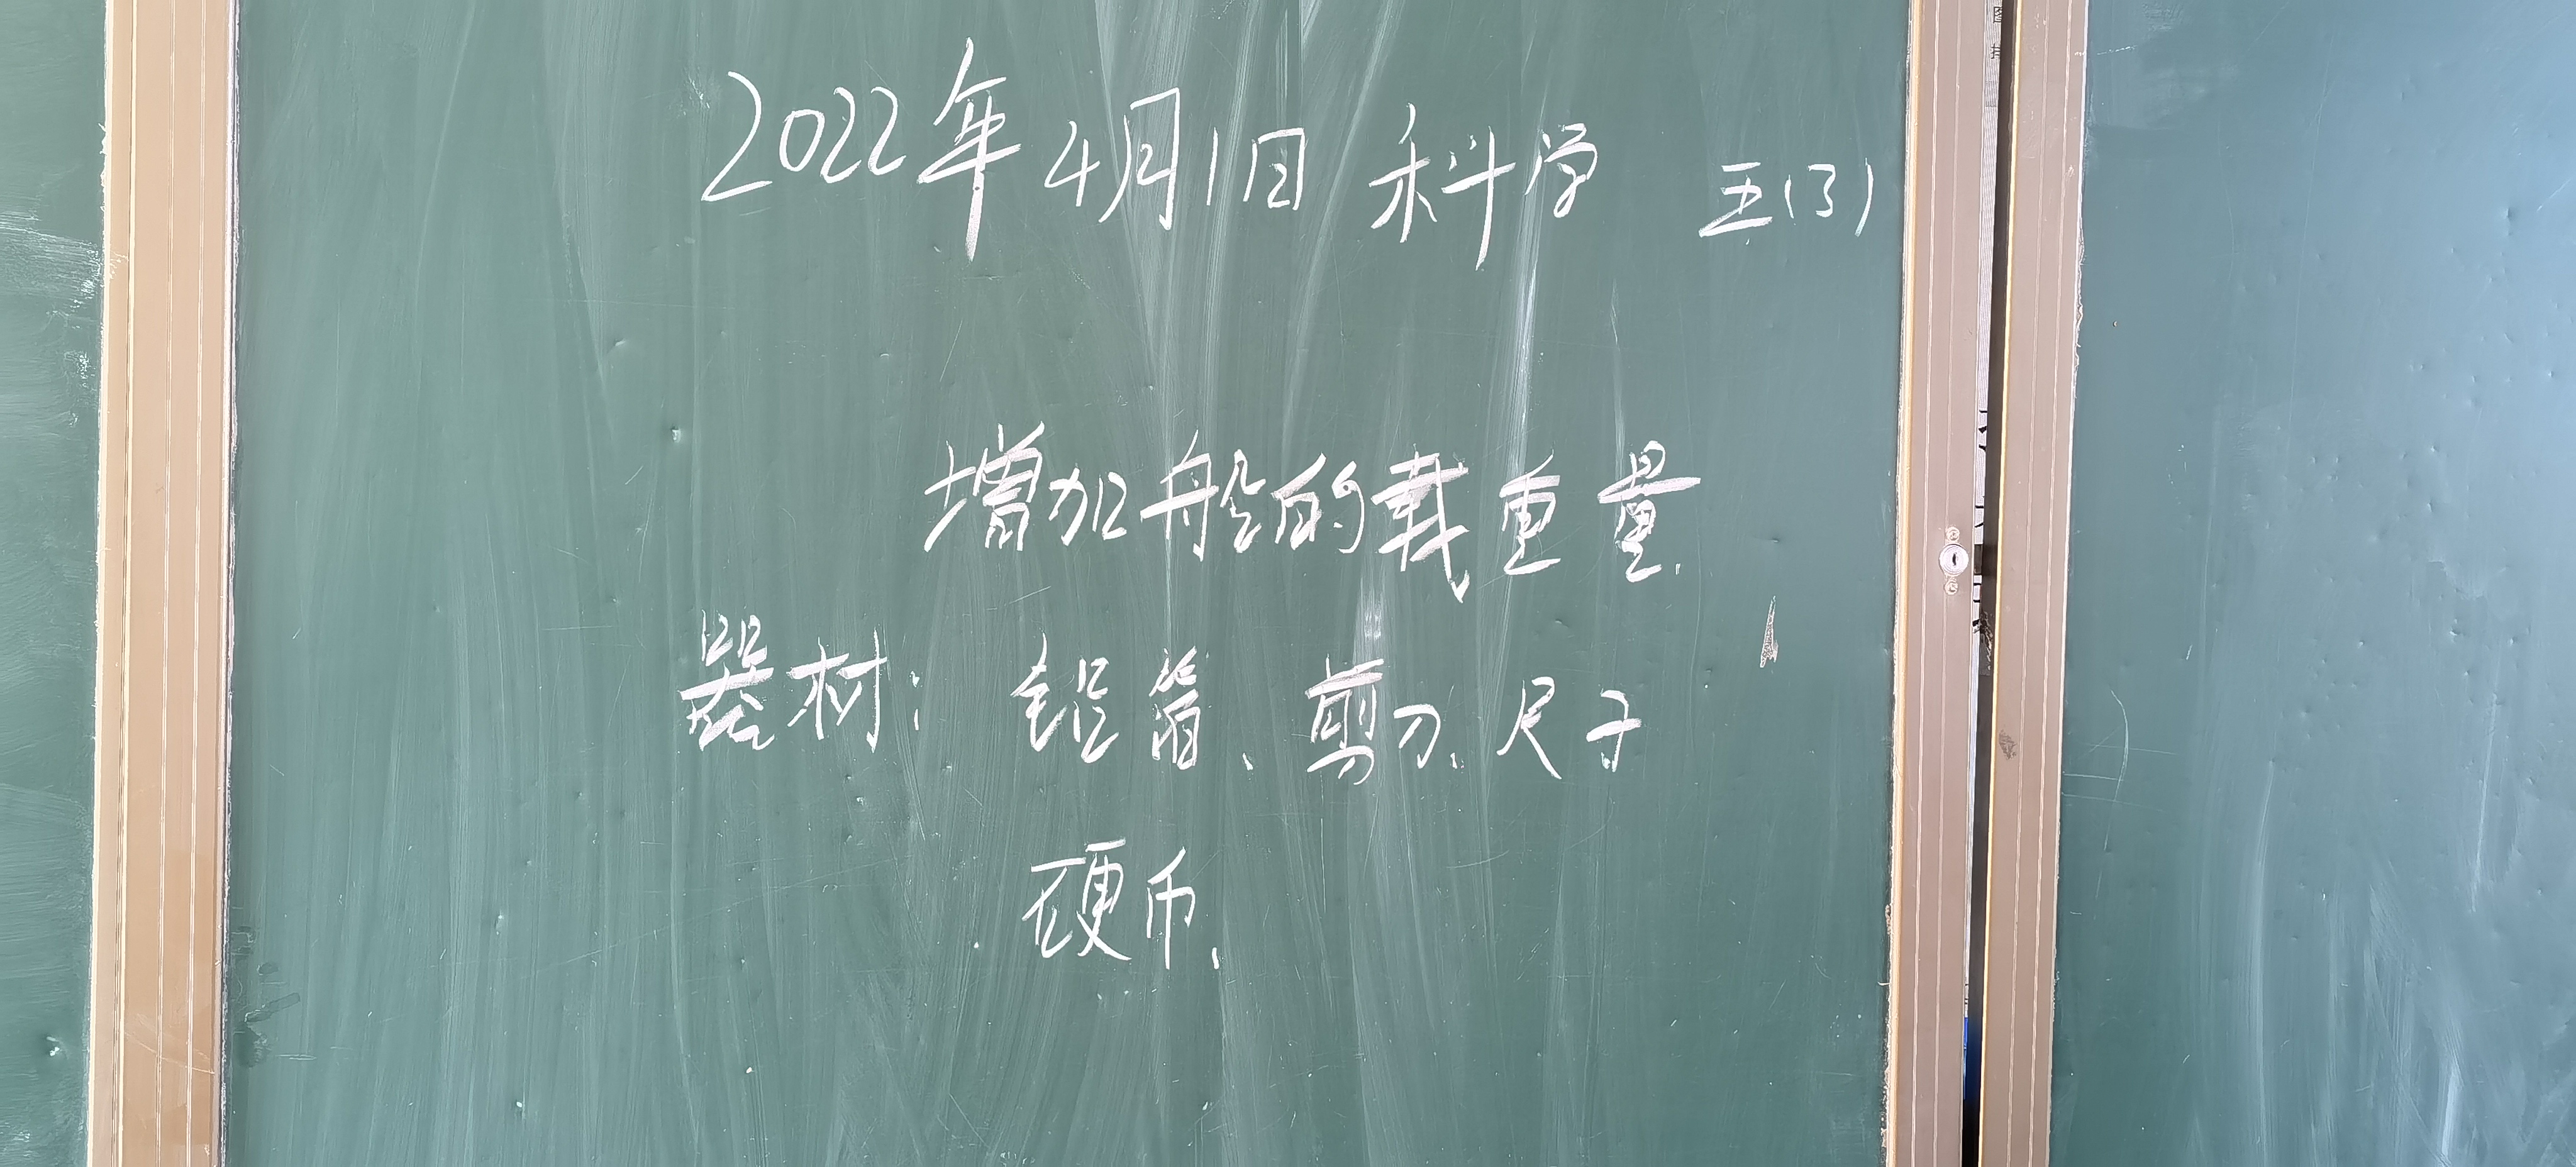 2022年4月1日 科学 五(3)
增加船的载重量.
器材: 铝箔、剪刀、尺子
硬币、